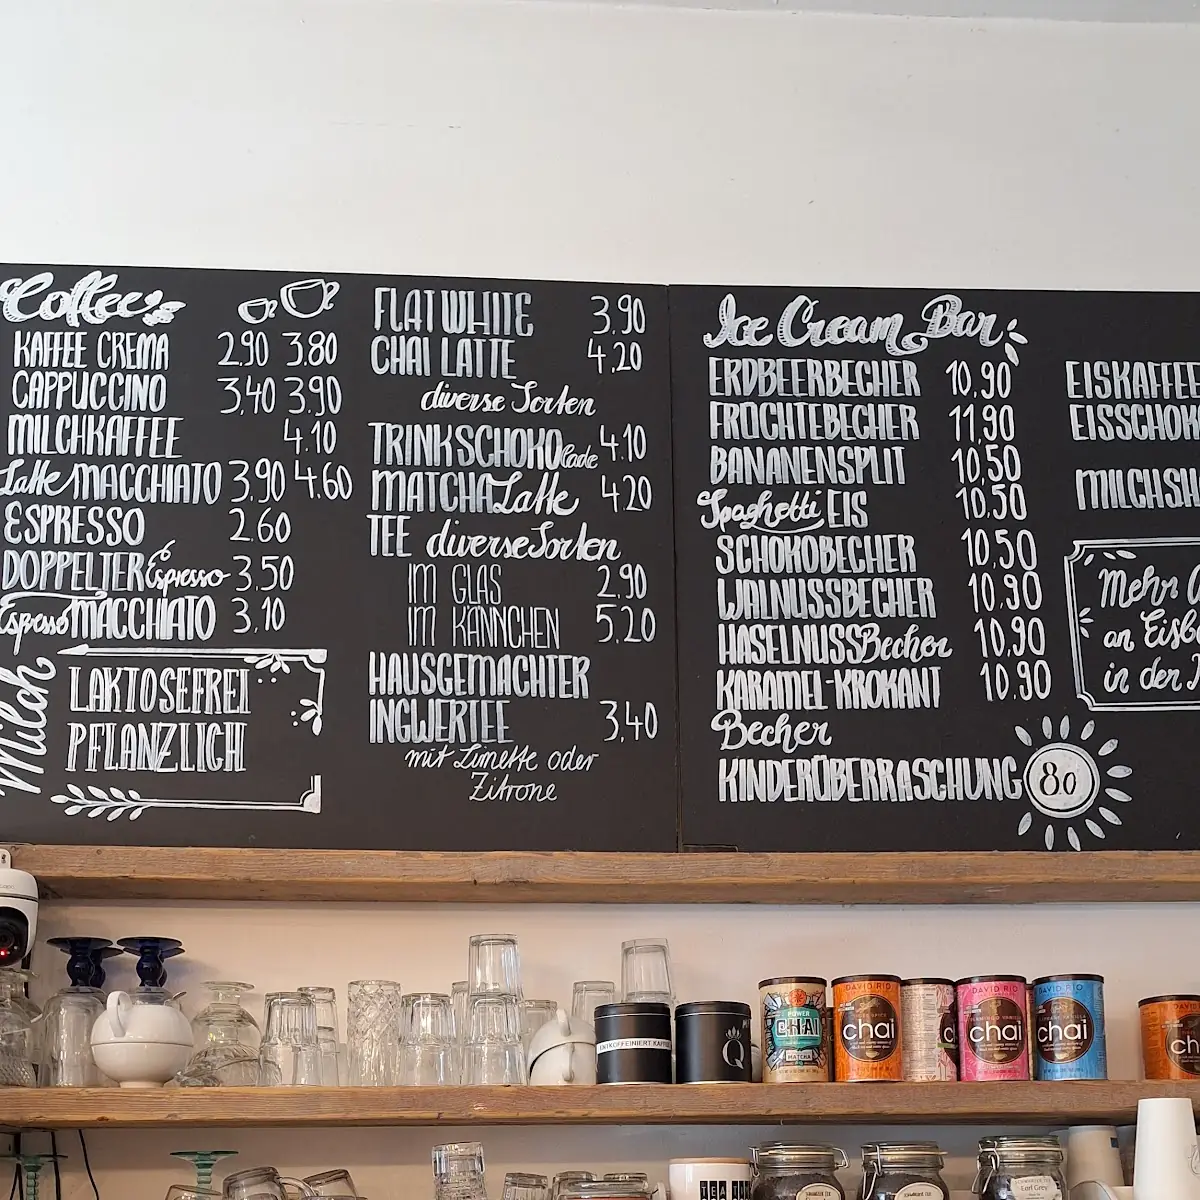 Coffee
KAFFEE CREMA 2.90 3.80
CAPPUCCINO 3.40 3.90
MILCHKAFFEE 4.10
Latte MACCHIATO 3.90 4.60
ESPRESSO 2.60
DOPPELTER Espresso 3.50
Espresso MACCHIATO 3.10
Milch
LAKTOSEFREI
PFLANZLICH
FLAT WHITE 3.90
CHAI LATTE 4.20
diverse Sorten
TRINKSCHOKOlade 4.10
MATCHA Latte 4.20
TEE diverse Sorten
IM GLAS 2.90
IM KÄNNCHEN 5.20
HAUSGEMACHTER
INGWERTEE 3.40
mit Limette oder
Zitrone
Ice Cream Bar
ERDBEERBECHER 10.90
FRÜCHTEBECHER 11.90
BANANENSPLIT 10.50
Spaghetti EIS 10.50
SCHOKOBECHER 10.50
WALNUSSBECHER 10.90
HASELNUSS Becher 10.90
KARAMEL-KROKANT 10.90
Becher
KINDERÜBERRASCHUNG 8.0
EISKAFFEE
EISSCHOK
MILCHSH
Mehr
an Eisb
in der
ENTKOFFEINIERT KAFF
Q
POWER
CHAI
MATCHA
DAVID RIO
chai
DAVID RIO
chai
DAVID RIO
chai
DAVID
ch
TEA
Earl Grey